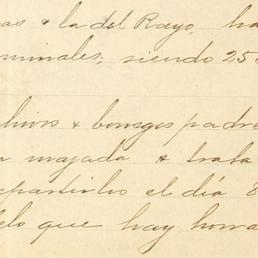 as & la del Rayo, ha
minales; siendo 25
chivos & borregos padre
majada & trata
partirlos el día 8
elo que hay horra